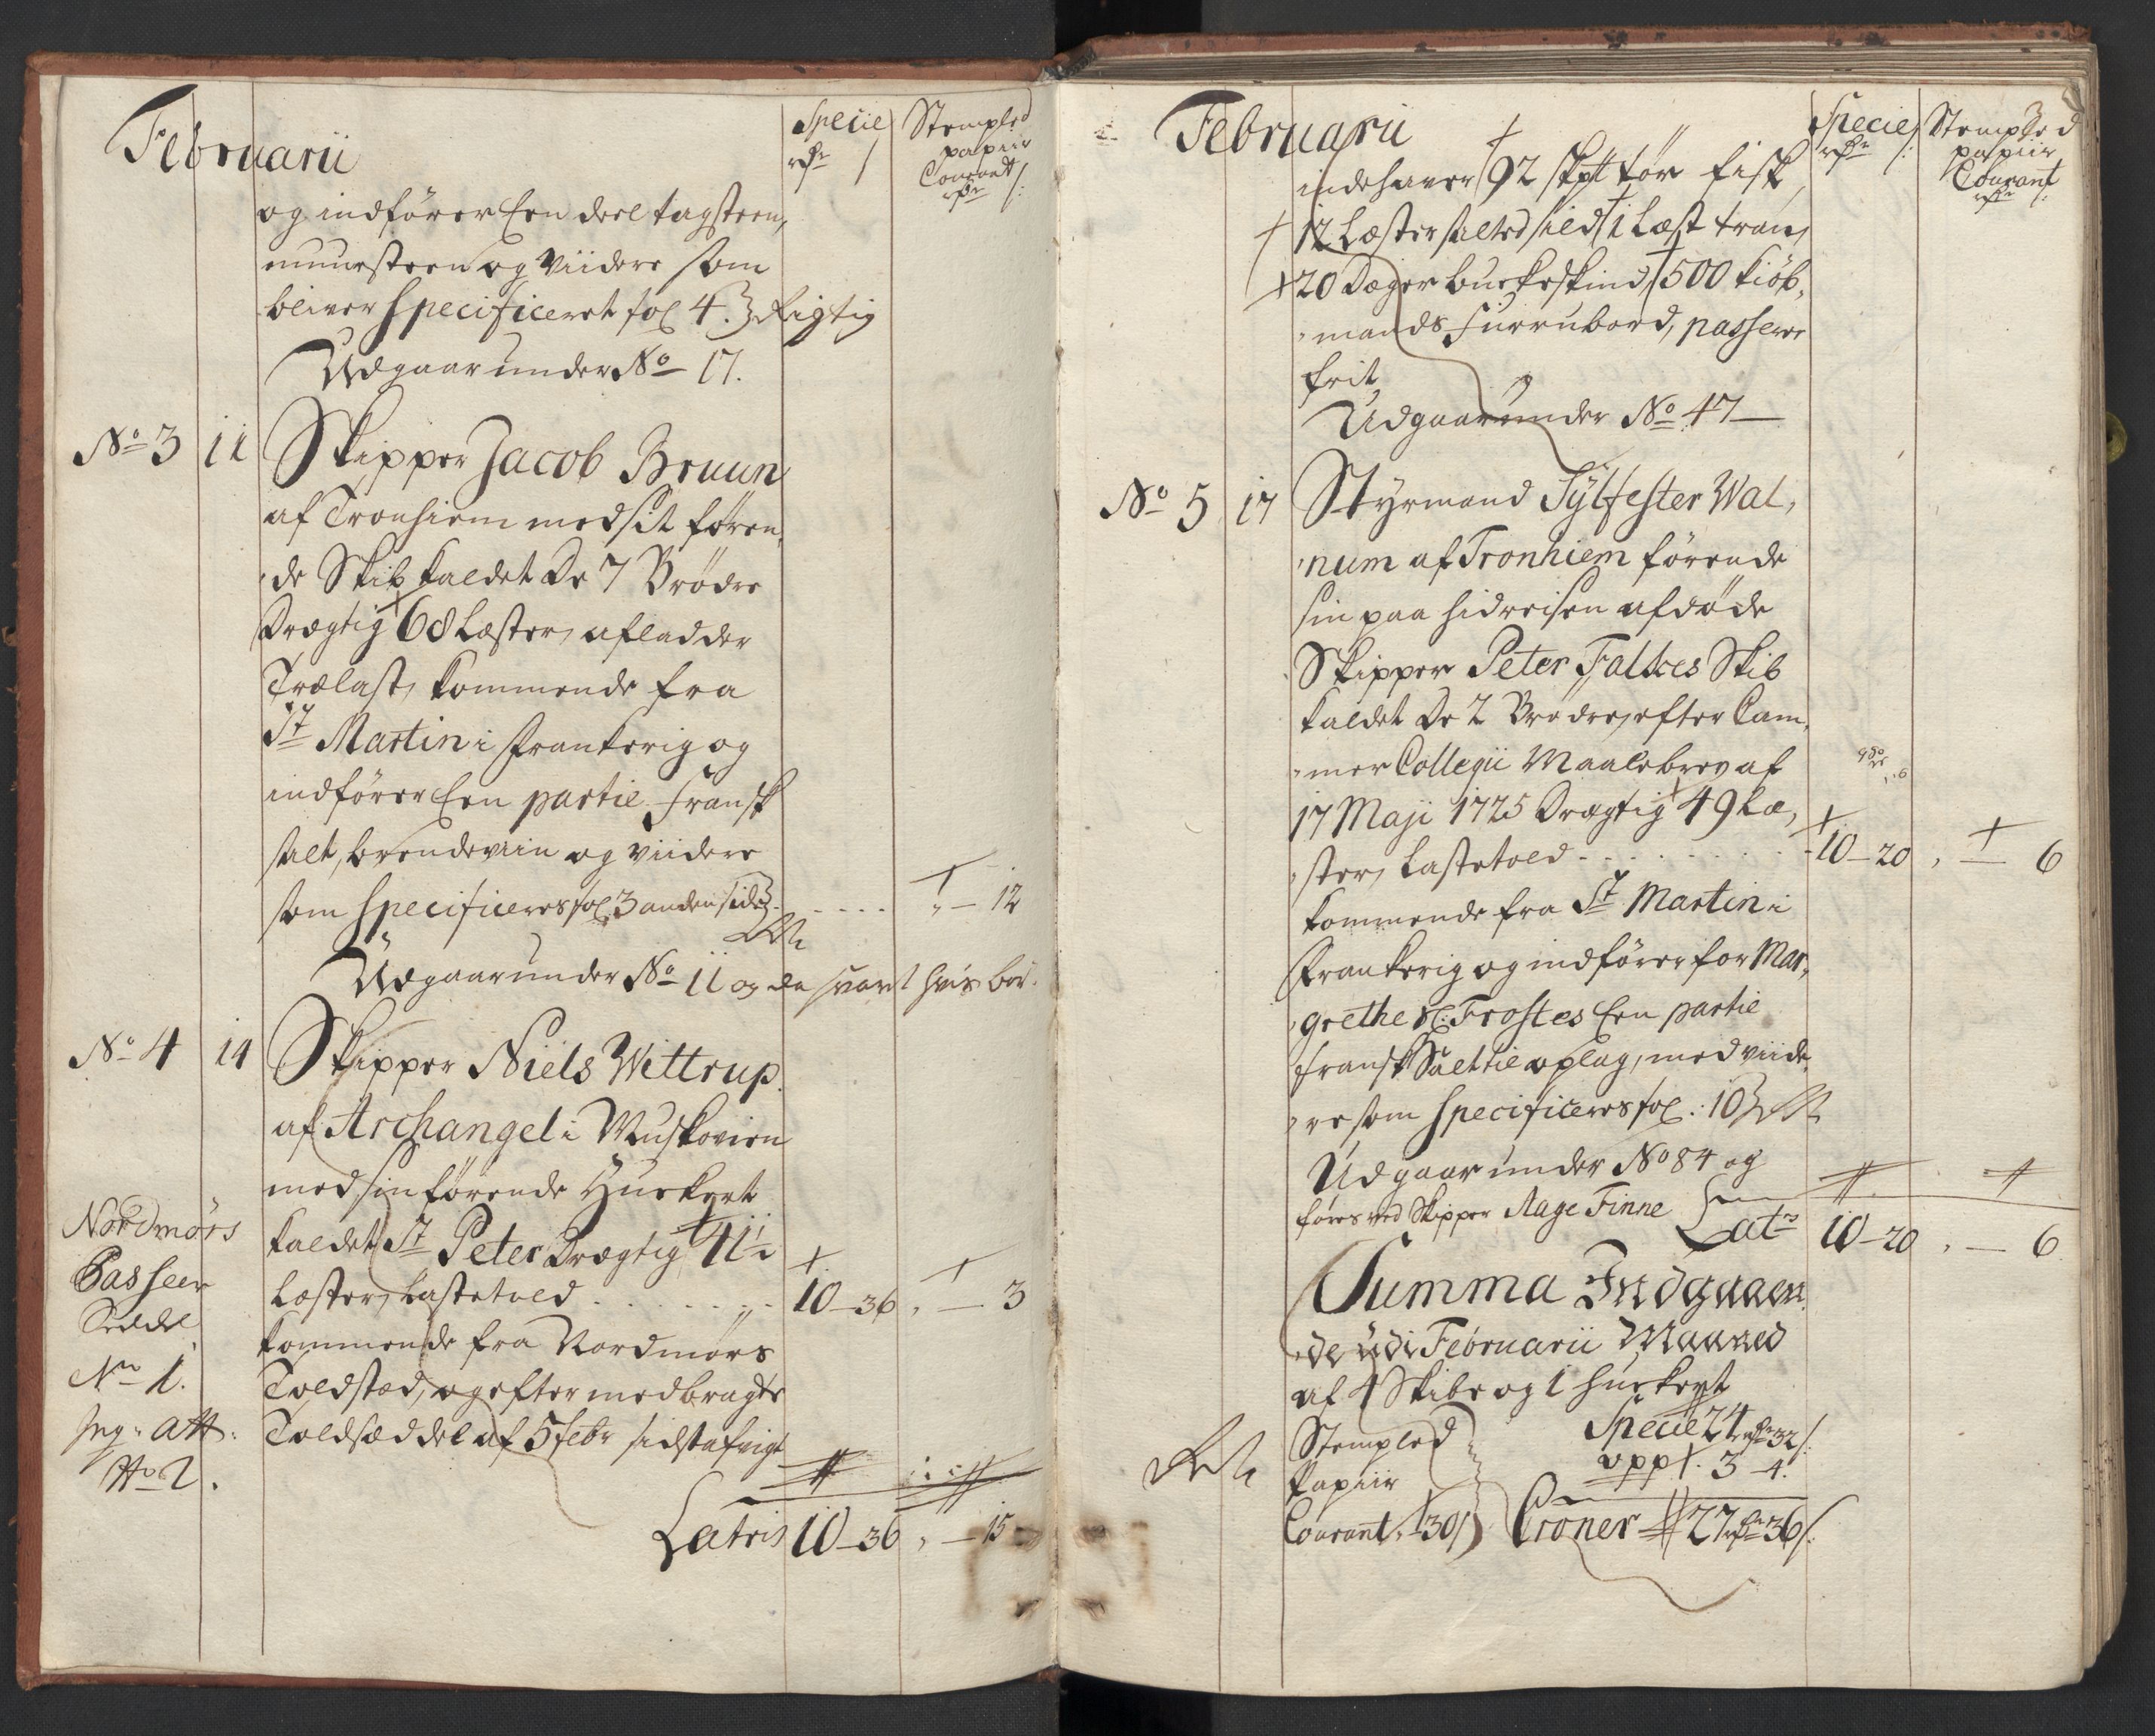 Februarii
Specie
rdr
Stempled
papiir
Courant
rdr
og indfører Een deel tagsteen,
muursteen og Viidere som
bliver specificeret fol 4. Rigtig
Udgaar under No 17.
No 3 11 Skipper Jacob Bruun
af Tronhiem med sit føren,
de Skib kaldet De 7 Brødre
Drægtig 68 Læster, afladder
Trælast, kommende fra
St Martin i Frankerig og
indfører Een partie Fransk
salt, brendeviin og viidere
som specificeres fol 3 anden side . . . . . „ — 12
Udgaar under No 11 og da svart hvis bør.
No 4 14 Skipper Niels Wittrup
af Archangel i Muskovien
med sin førende Huckert
kaldet St Peter Drægtig 41½
Læster, Lastetold . . . . . 10 — 36 „ — 3
kommende fra Nordmørs
Toldstæd, og efter medbragte
Toldsæddel af 5 febr sidst afvigt
Nordmørs
Passeer
Seddel
No 1.
No 2.
Latris 10 — 36 „ — 15
Februarii
Specie
rdr
Stempled
papiir
Courant
rdr
indehaver 92 skptt tør fisk
12 Læster salted sild, 1 Læst tran,
20 Deger buckeskind, 500 kiøb,
mands Furrubord, passerer
frit,
Udgaar under No 47 —
No 5 17 Styrmand Sylfester Wal,
num af Tronhiem førende
sin paa hidreisen afdøde
Skipper Peter Falkes Skib
kaldet De 2 Brødre, efter Cam,
mer Collegii Maalebrev af
17 Maji 1725 Drægtig 49 Læ,
ster, Lastetold . . . . . 10 — 20 „ — 6
kommende fra St Martin i
Frankerig og indfører for Mar,
grethe Sl: Frostes Een partie
fransk Salt til oplag, med viide,
re som specificeres fol: 10
Udgaar under No 84 og
føres ved Skipper Aage Finne
Lats 10 — 20 „ — 6
Summa Indgaaen
de udi Februarii Maaned
af 4 Skibe og 1 huckert
Stempled
Papiir
Courant 30
Specie 24 rdr 32
opp 1. 3 — 4.
Croner 27 rdr 36